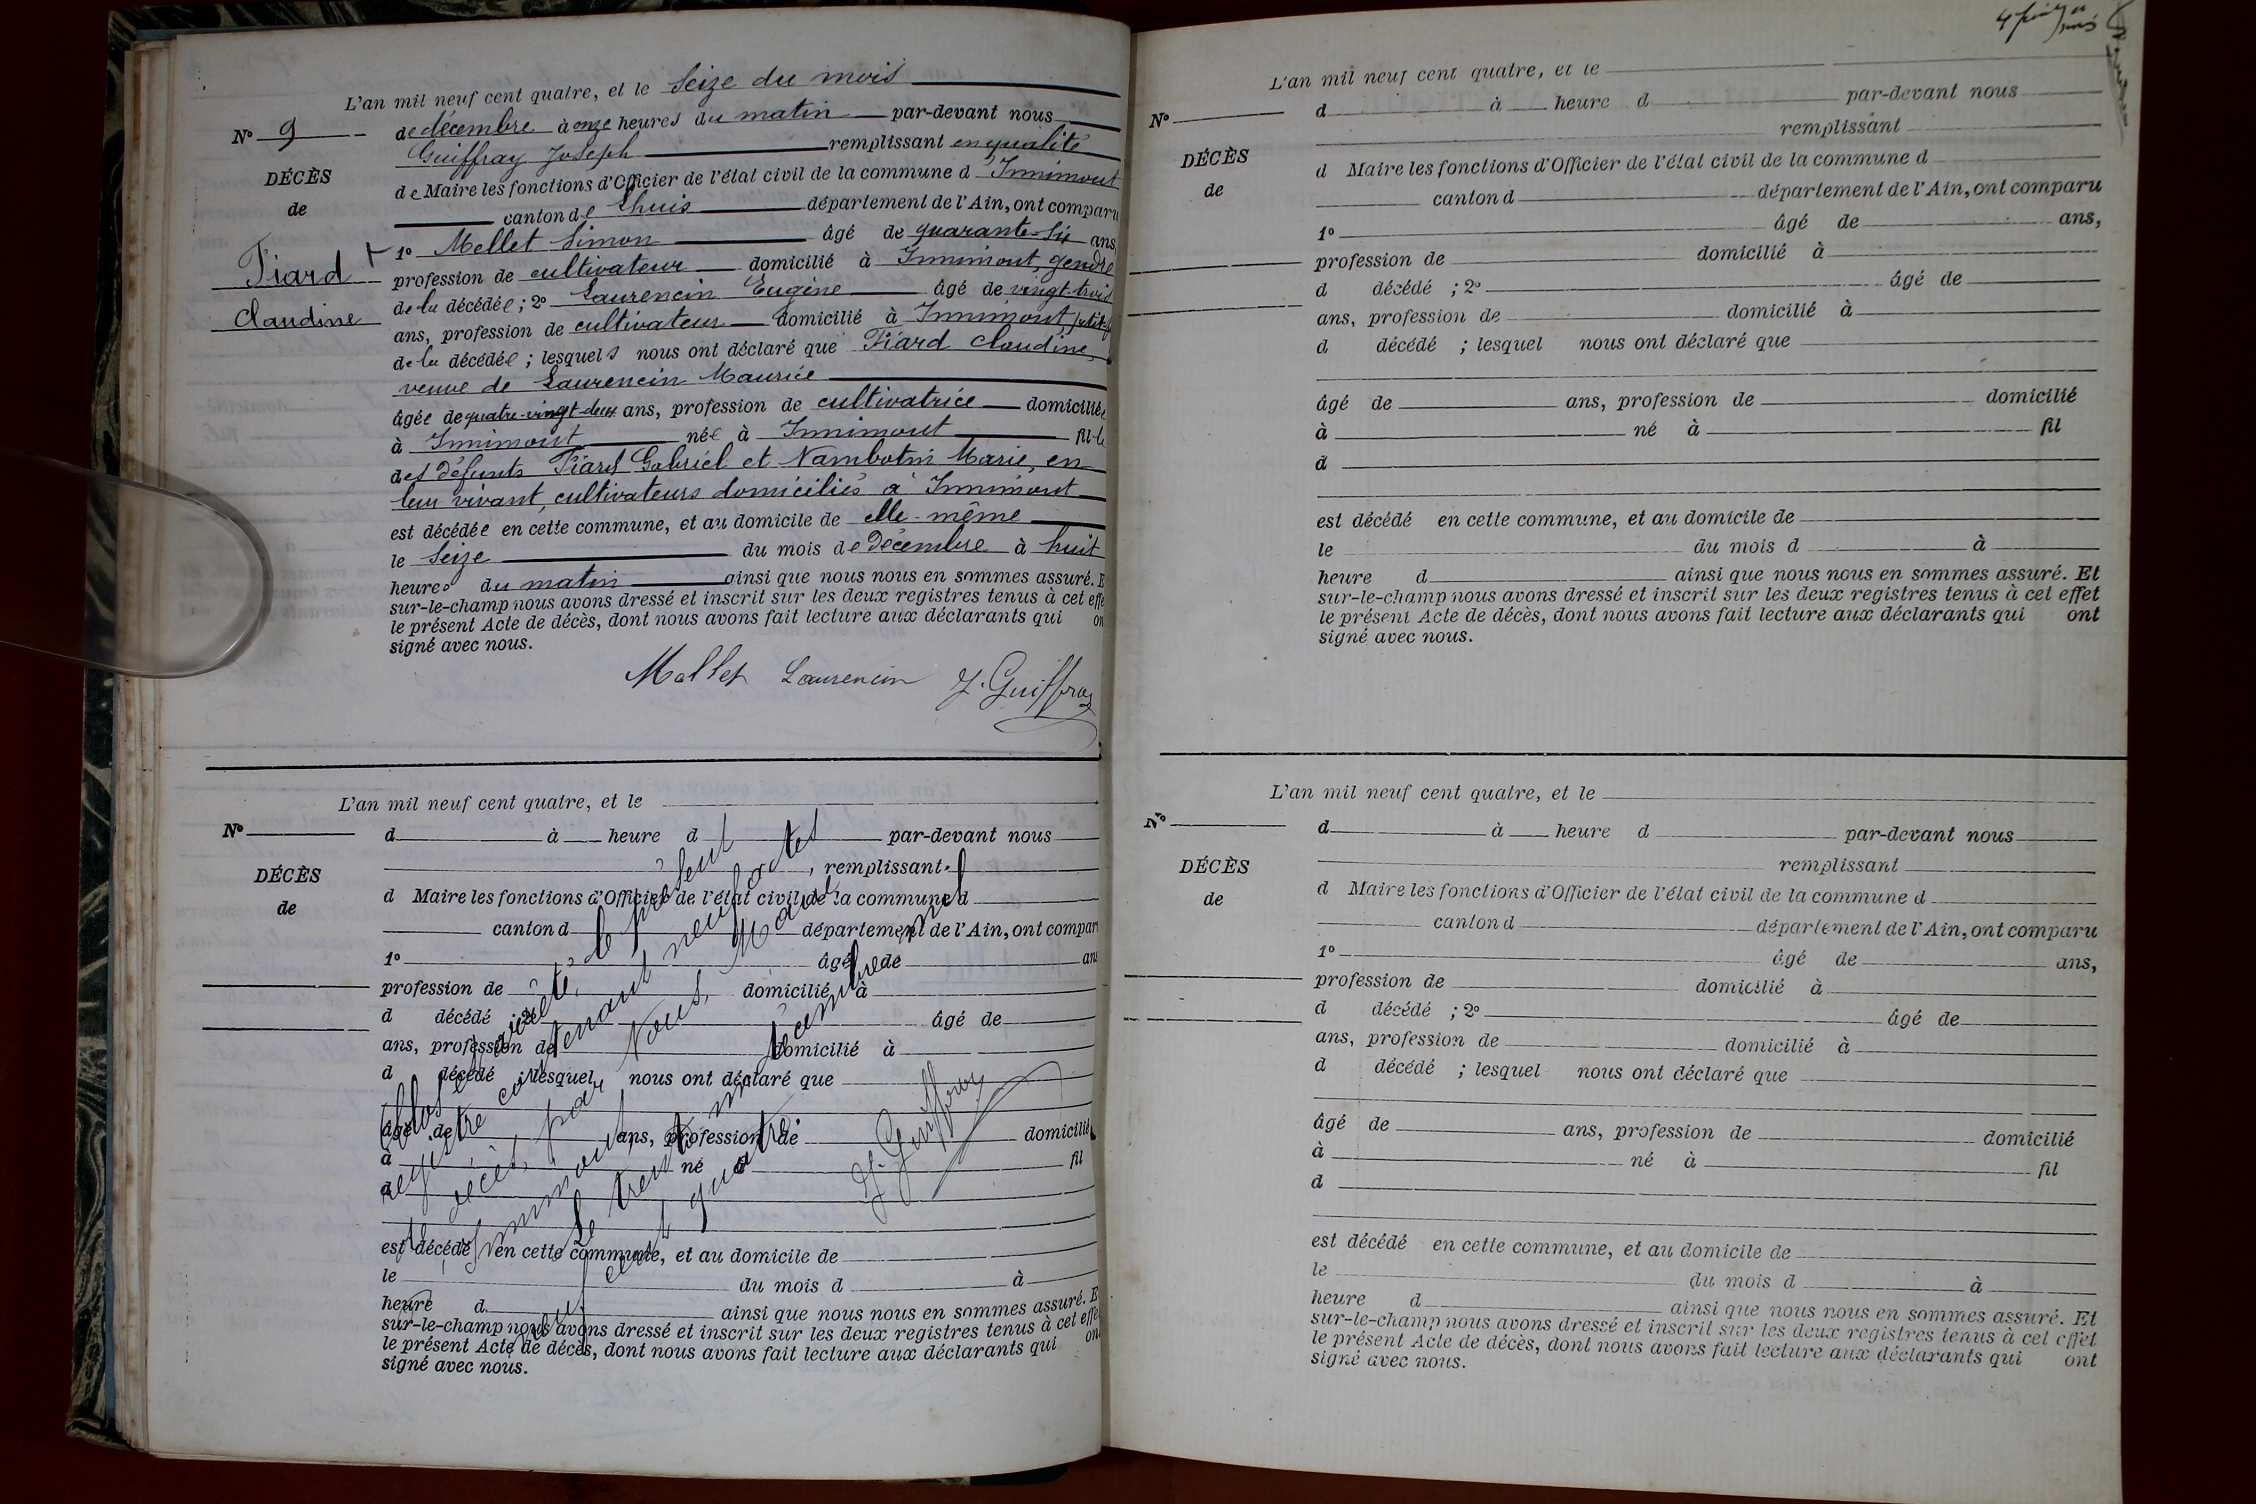 L'an mil neuf cent quatre, et le Seize du mois
N° 9
de décembre à onze heures du matin par-devant nous
Guiffray Joseph remplissant en qualité
DÉCÈS
de Maire les fonctions d'Officier de l'état civil de la commune d'Innimont
de
canton de Lhuis département de l'Ain, ont comparu
1° Mollet Simon âgé de quarante-six ans,
Tiard
profession de cultivateur domicilié à Innimont, gendre
Claudine
de la décédée ; 2° Laurencin Eugène âgé de vingt-trois
ans, profession de cultivateur domicilié à Innimont, petit-fils
de la décédée ; lesquels nous ont déclaré que Tiard Claudine,
veuve de Laurencin Maurice
âgée de quatre-vingt-deux ans, profession de cultivatrice domiciliée
à Innimont née à Innimont fille
des défunts Tiard Gabriel et Nambotin Marie, en
leur vivant, cultivateurs domiciliés à Innimont
est décédée en cette commune, et au domicile de elle-même
le Seize du mois de Décembre à huit
heures du matin ainsi que nous nous en sommes assuré. E
sur-le-champ nous avons dressé et inscrit sur les deux registres tenus à cet effe
le présent Acte de décès, dont nous avons fait lecture aux déclarants qui on
signé avec nous.
Mollet Laurencin J. Guiffray
L'an mil neuf cent quatre, et le
N°
d à heure d par-devant nous
, remplissant
DÉCÈS
d Maire les fonctions d'Officier de l'état civil de la commune d
de
canton d département de l'Ain, ont compar
1° âgé de ans
profession de domicilié à
d décédé ; 2° âgé de
ans, profession de domicilié à
d décédé ; lesquel nous ont déclaré que
âgé de ans, profession de domicilié
à né à fil
d
est décédé en cette commune, et au domicile de
le du mois d à
heure d ainsi que nous nous en sommes assuré. E
sur-le-champ nous avons dressé et inscrit sur les deux registres tenus à cet effe
le présent Acte de décès, dont nous avons fait lecture aux déclarants qui on
signé avec nous.
Clos et arrêté, le présent
registre contenant neuf actes
de décès, par Nous, Maire
d'Innimont, le trente et un décembre mil
neuf cent quatre.
J. Guiffray
L'an mil neuf cent quatre, et le
N°
d à heure d par-devant nous
remplissant
DÉCÈS
d Maire les fonctions d'Officier de l'état civil de la commune d
de
canton d département de l'Ain, ont comparu
1° âgé de ans,
profession de domicilié à
d décédé ; 2° âgé de
ans, profession de domicilié à
d décédé ; lesquel nous ont déclaré que
âgé de ans, profession de domicilié
à né à fil
d
est décédé en cette commune, et au domicile de
le du mois d à
heure d ainsi que nous nous en sommes assuré. Et
sur-le-champ nous avons dressé et inscrit sur les deux registres tenus à cet effet
le présent Acte de décès, dont nous avons fait lecture aux déclarants qui ont
signé avec nous.
L'an mil neuf cent quatre, et le
N°
d à heure d par-devant nous
remplissant
DÉCÈS
d Maire les fonctions d'Officier de l'état civil de la commune d
de
canton d département de l'Ain, ont comparu
1° âgé de ans,
profession de domicilié à
d décédé ; 2° âgé de
ans, profession de domicilié à
d décédé ; lesquel nous ont déclaré que
âgé de ans, profession de domicilié
à né à fil
d
est décédé en cette commune, et au domicile de
le du mois d à
heure d ainsi que nous nous en sommes assuré. Et
sur-le-champ nous avons dressé et inscrit sur les deux registres tenus à cet effet
le présent Acte de décès, dont nous avons fait lecture aux déclarants qui ont
signé avec nous.